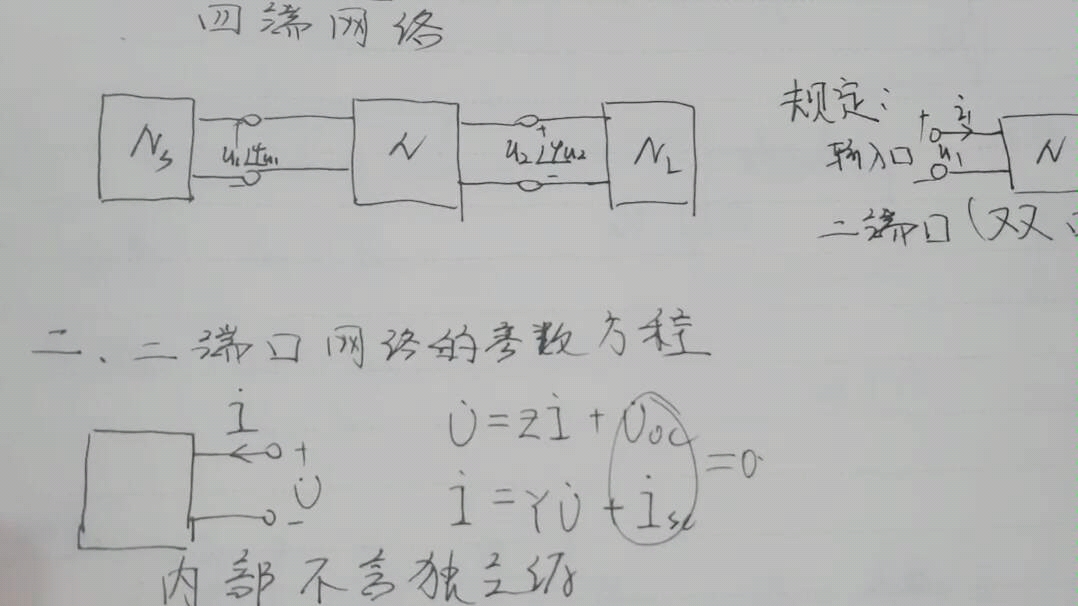 四端网络
Ns
N
NL
u2
u2
规定：
+ i1
输入口 u1 N
-
二端口（双
二、二端口网络的参数方程
İ
+
U̇
-
U̇=Zİ+U̇oc
İ=YU̇+İsc
=0
内部不含独立源